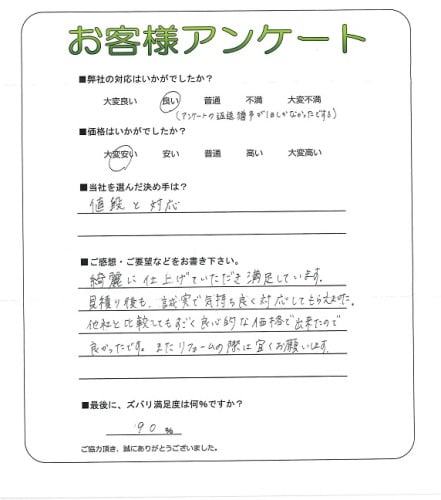 お客様アンケート
■弊社の対応はいかがでしたか?
大変良い 良い 普通 不満 大変不満
(アンケートの返送
■価格はいかがでしたか?
大変安い 安い 普通 高い 大変高い
■当社を選んだ決め手は?
値段と対応
■ご感想・ご要望などをお書き下さい。
綺麗に仕上げていただき満足しています。
見積り後も、誠実で気持ち良く対応してもらえた。
他社と比較してもすごく良心的な価格で出来たので
良かったです。またリフォームの際は宜くお願います。
■最後に、ズバリ満足度は何%ですか?
90 %
ご協力頂き、誠にありがとうございました。